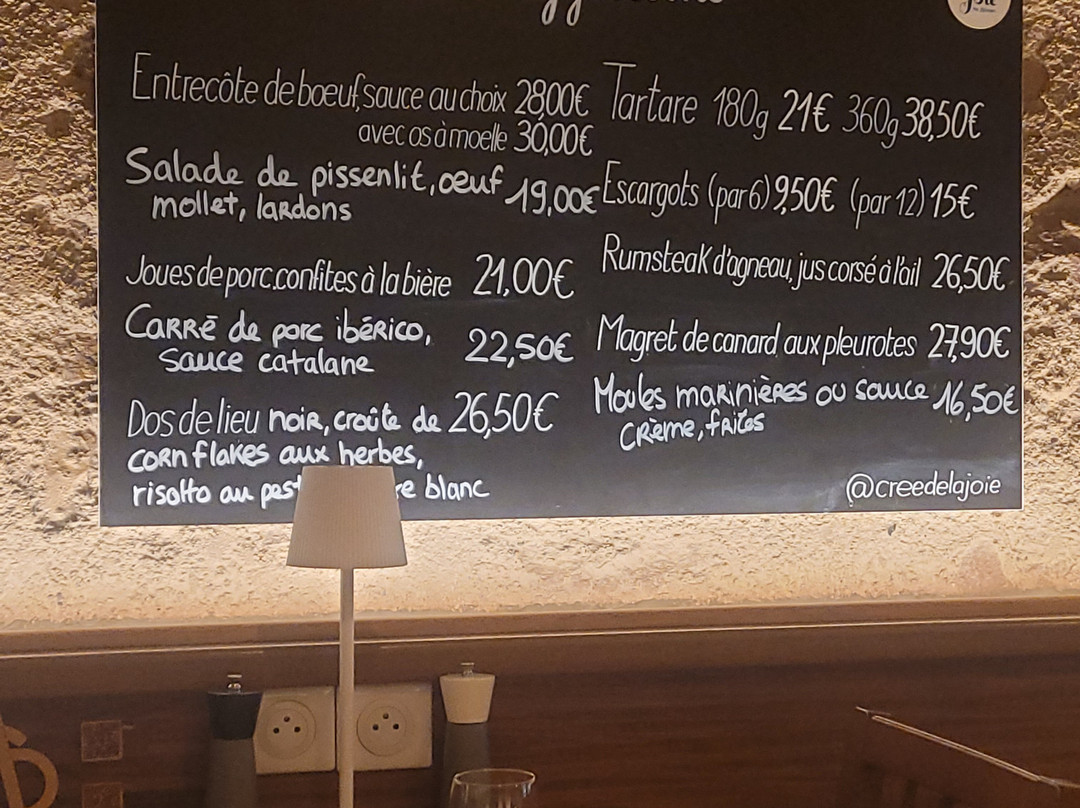 Entrecôte de boeuf, sauce au choix 28,00€
avec os à moelle 30,00€
Salade de pissenlit, oeuf 19,00€
mollet, lardons
Joues de porc confites à la bière 21,00€
Carré de porc ibérico,
sauce catalane 22,50€
Dos de lieu noir, croûte de 26,50€
corn flakes aux herbes,
risotto au blanc
Tartare 180g 21€ 360g 38,50€
Escargots (par 6) 9,50€ (par 12) 15€
Rumsteak d'agneau, jus corsé à l'ail 26,50€
Magret de canard aux pleurotes 27,90€
Moules marinières ou sauce 16,50€
crème, frites
@creedelajoie